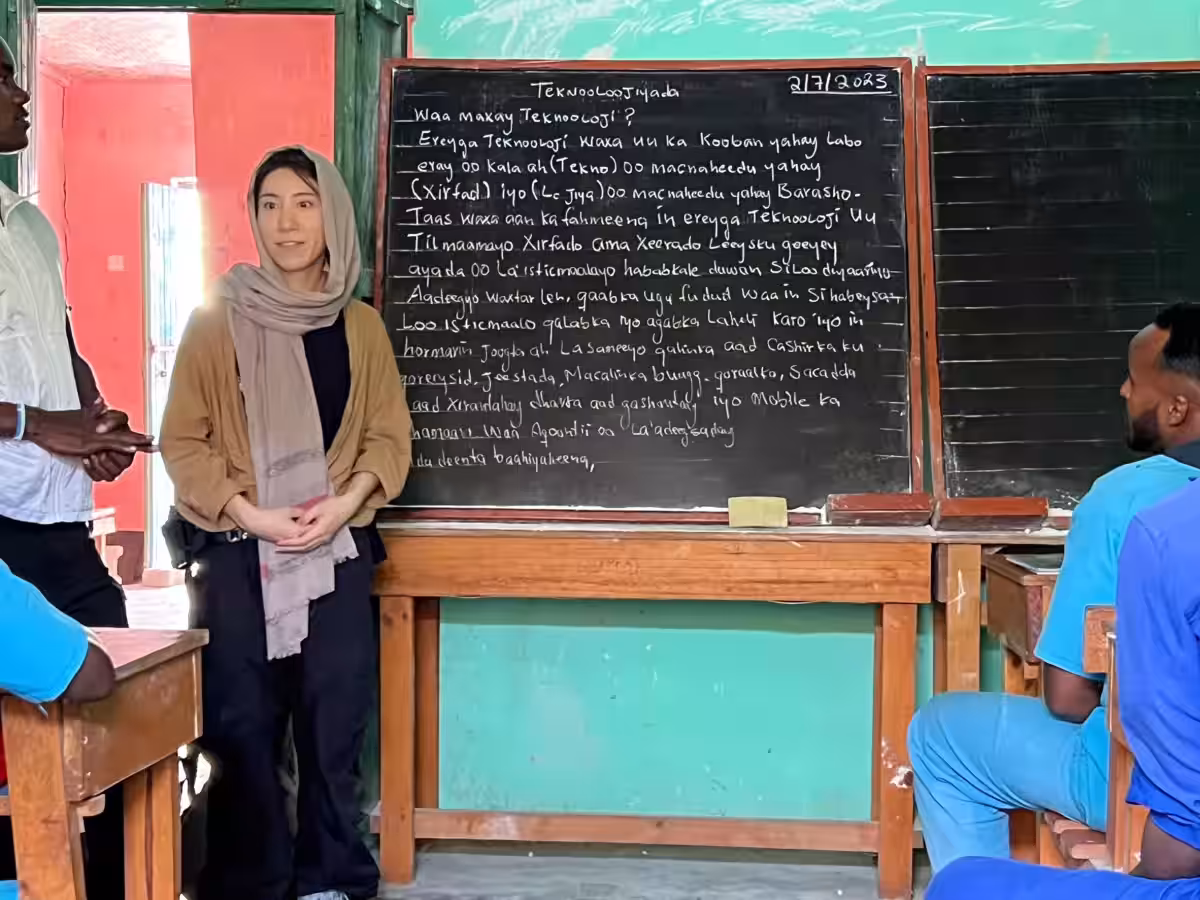 Teknooloojiyada
2/7/2023
Waa maxay Teknooloji?
Ereyga Teknooloji waxa uu ka Kooban yahay Labo
eray oo kala ah (Tekno) oo macnaheedu yahay
(Xirfad) iyo (Lojiya) oo macnaheedu yahay Barasho.
Taas waxa aan ka fahmeena in ereyga Teknooloji Uu
Tilmaamayo Xirfado ama Xeerado Leeysku geeyey
ayada oo La'isticmaalayo hababkale duwan Si Loo
Aadeegyo waxtar leh, qaabka ugu fudud waa in
Loo isticmaalo qalabka iyo agabka Laheli Karo iyo in
hormarin Joogta ah La sameeyo qalinka aad Casharka ku
Macalinka
aad dhavta aad iyo Mobile ka
Waa oo La'adeegsaday
baahiyaheena,